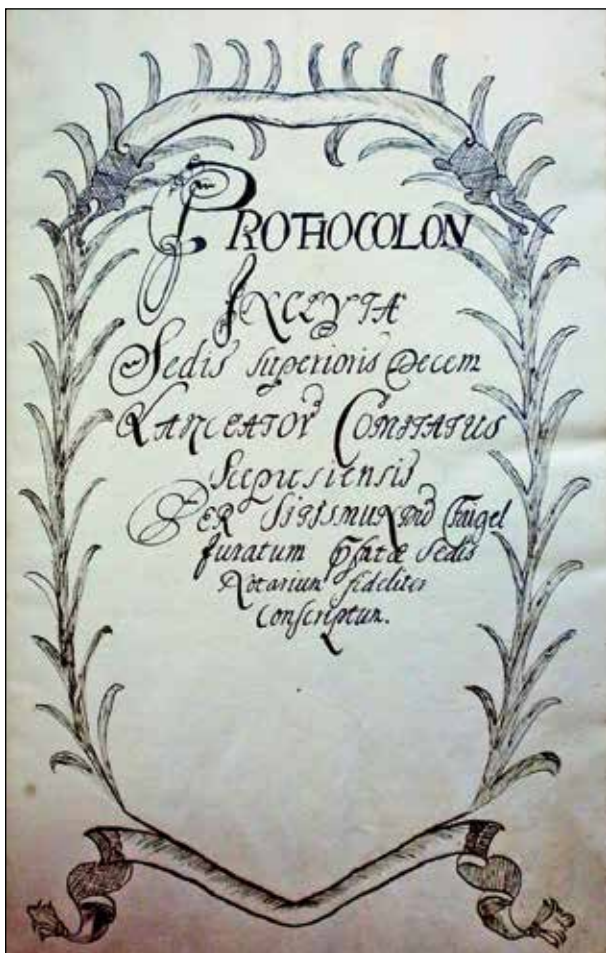 PROTHOCOLON
INCLYTÆ
Sedis superioris Decem
LANCEATOR COMITATUS
Scepusiensis
PER SIGISMUNDUM
Juratum Sedis
Notarium fideliter
conscriptum.